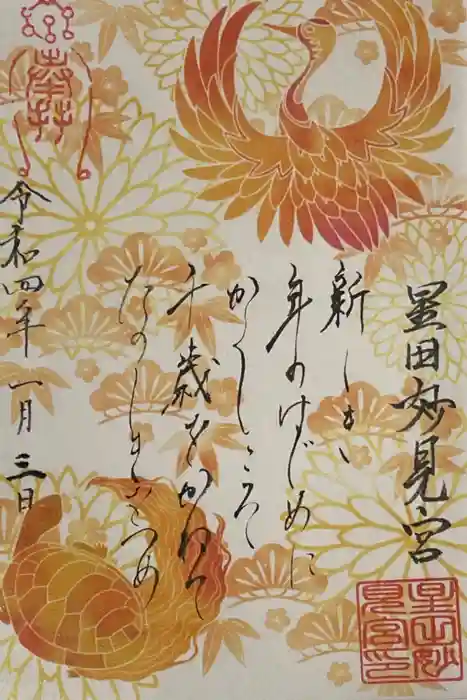 星田妙見宮
新しき
年のはじめに
かくしこそ
千歳をかねて
たのしきをつめ
奉拝
令和四年一月三日